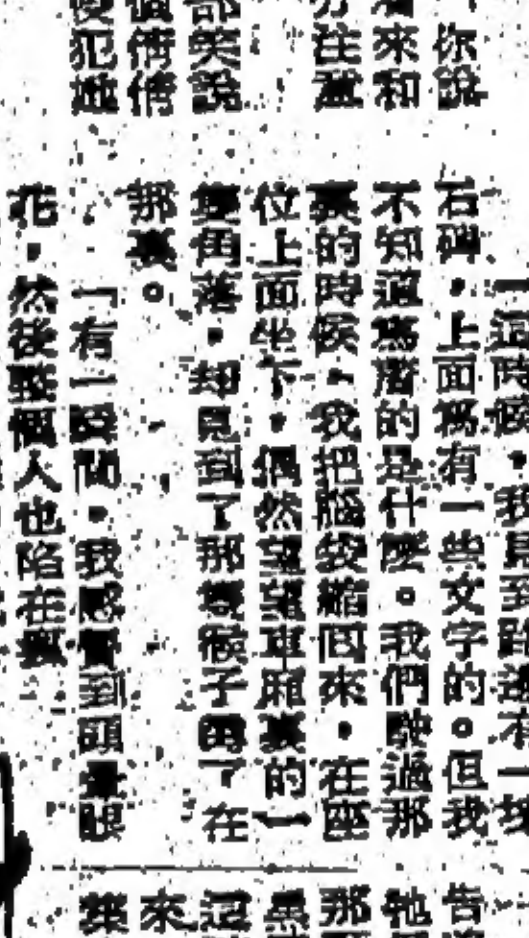 你說
來和
住
部笑說
犯她
「這時候，我見到路邊有一塊
石碑，上面寫有一些文字的。但我
不知道寫着的是什麼。我們駛過那
裏的時候，我把腦袋縮回來，在座
位上面坐下，偶然望望車廂裏的一
隻角落，却見到了那隻猴子
在
那裏。
「有一瞬間，我感覺到頭暈眼
花，然後整個人也陷在
告
牠
那
這
來